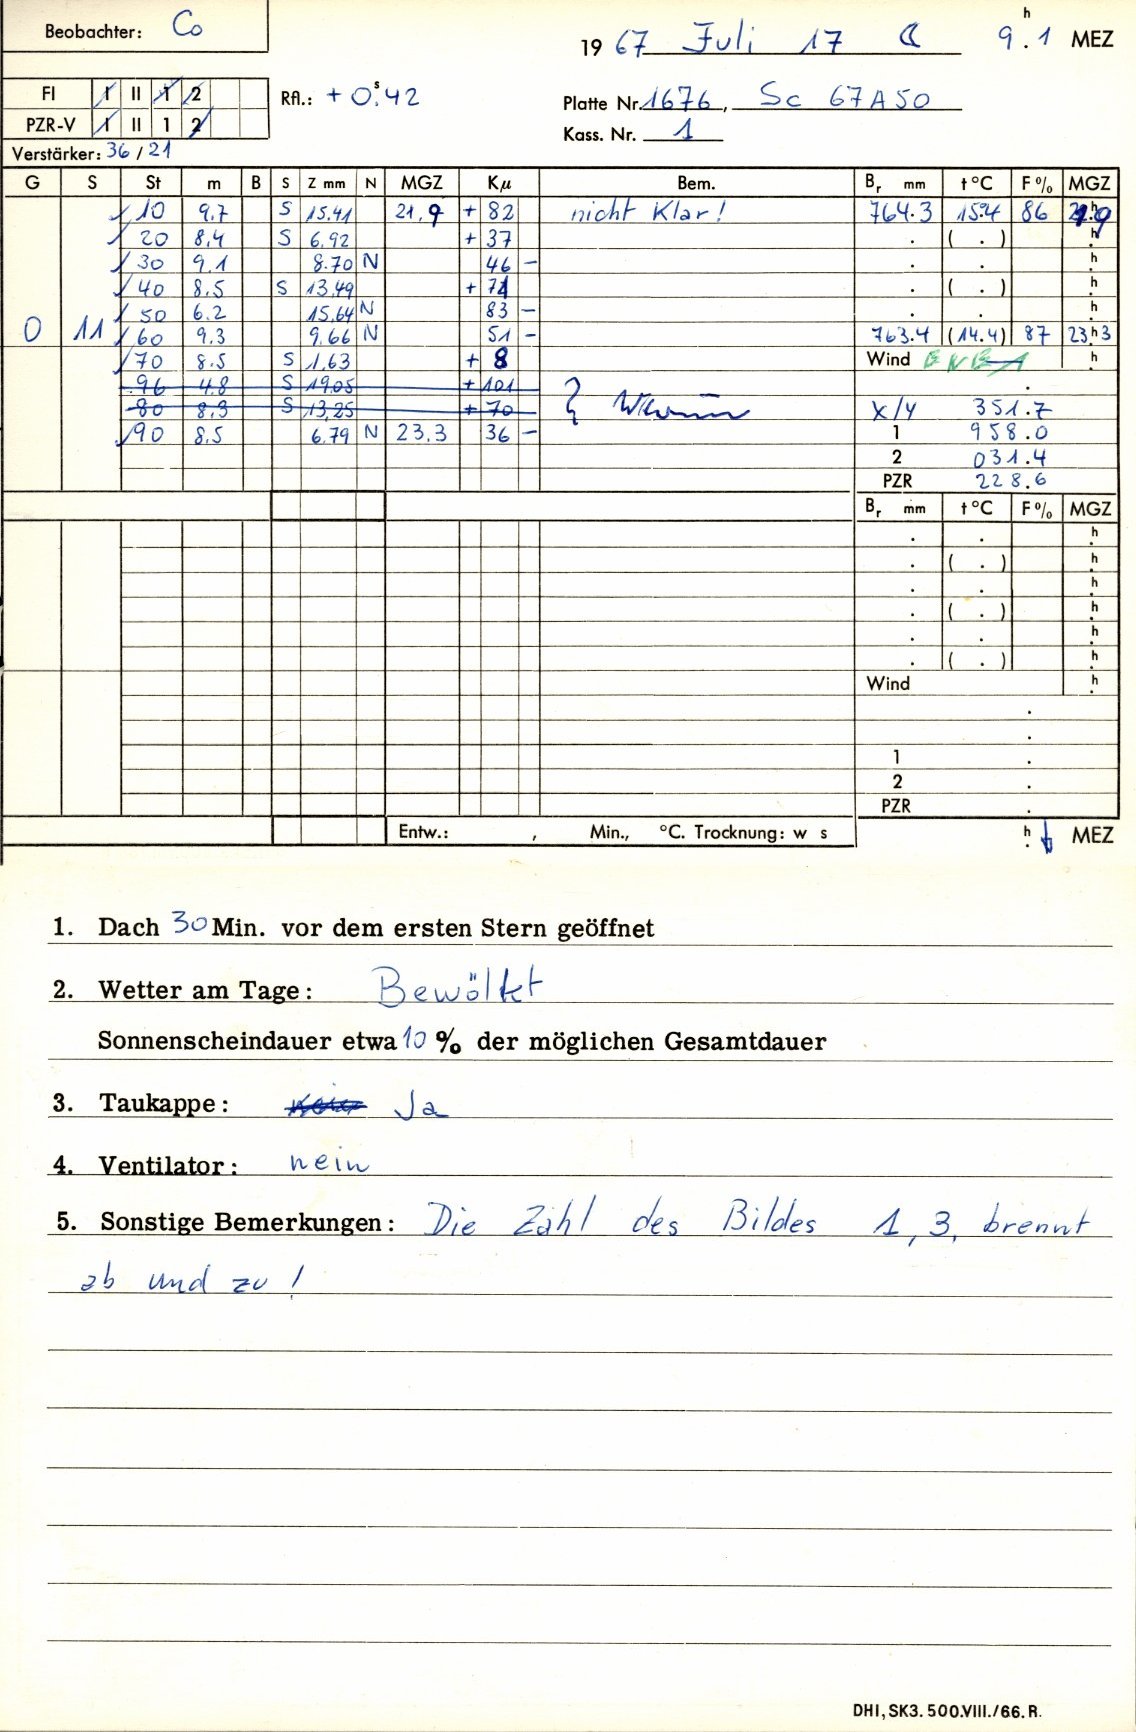 Beobachter: Co
19 67 Juli 17 9.1 h MEZ
FI I II 1 2
PZR-V I II 1 2
Rfl.: + 0.s42
Platte Nr. 1676, Sc 67A50
Kass. Nr. 1
Verstärker: 36 / 21
G S St m B S Z mm N MGZ Kμ Bem. Br mm t°C F% MGZ
10 9.7 S 15.41 21.9 + 82 nicht Klar! 764.3 15.4 86 h
20 8.4 S 6.92 + 37 . ( . ) h
30 9.1 8.70 N 46 - . . h
40 8.5 S 13.49 + 71 . ( . ) h
50 6.2 15.64 N 83 - . . h
0 11 60 9.3 9.66 N 51 - 763.4 (14.4) 87 23.h3
70 8.5 S 1.63 + 8 Wind h
96 4.8 S 19.05 + 101 .
80 8.3 S 13.25 + 70 X/Y 351.7
90 8.5 6.79 N 23.3 36 - 1 958.0
2 031.4
PZR 228.6
Br mm t°C F% MGZ
. . h
. ( . ) h
. . h
. ( . ) h
. . h
. ( . ) h
Wind h
.
.
1 .
2 .
PZR .
Entw.: , Min., °C. Trocknung: w s h MEZ
1. Dach 30 Min. vor dem ersten Stern geöffnet
2. Wetter am Tage: Bewölkt
Sonnenscheindauer etwa 10 % der möglichen Gesamtdauer
3. Taukappe: Ja
4. Ventilator: nein
5. Sonstige Bemerkungen: Die Zahl des Bildes 1, 3, brennt
ab und zu!
DHI, SK3. 500.VIII./66. R.